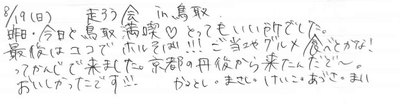 8/19(日) 走ろう会 in 鳥取
昨日・今日と鳥取満喫♡とってもいい所でした。
最後はココでホルそば!!! ご当地グルメ食べとかな!
ってかんじで来ました。京都の丹後から来たんだで〜。
おいしかったです!!! かつとし。まさし。けいこ。あづさ。まい